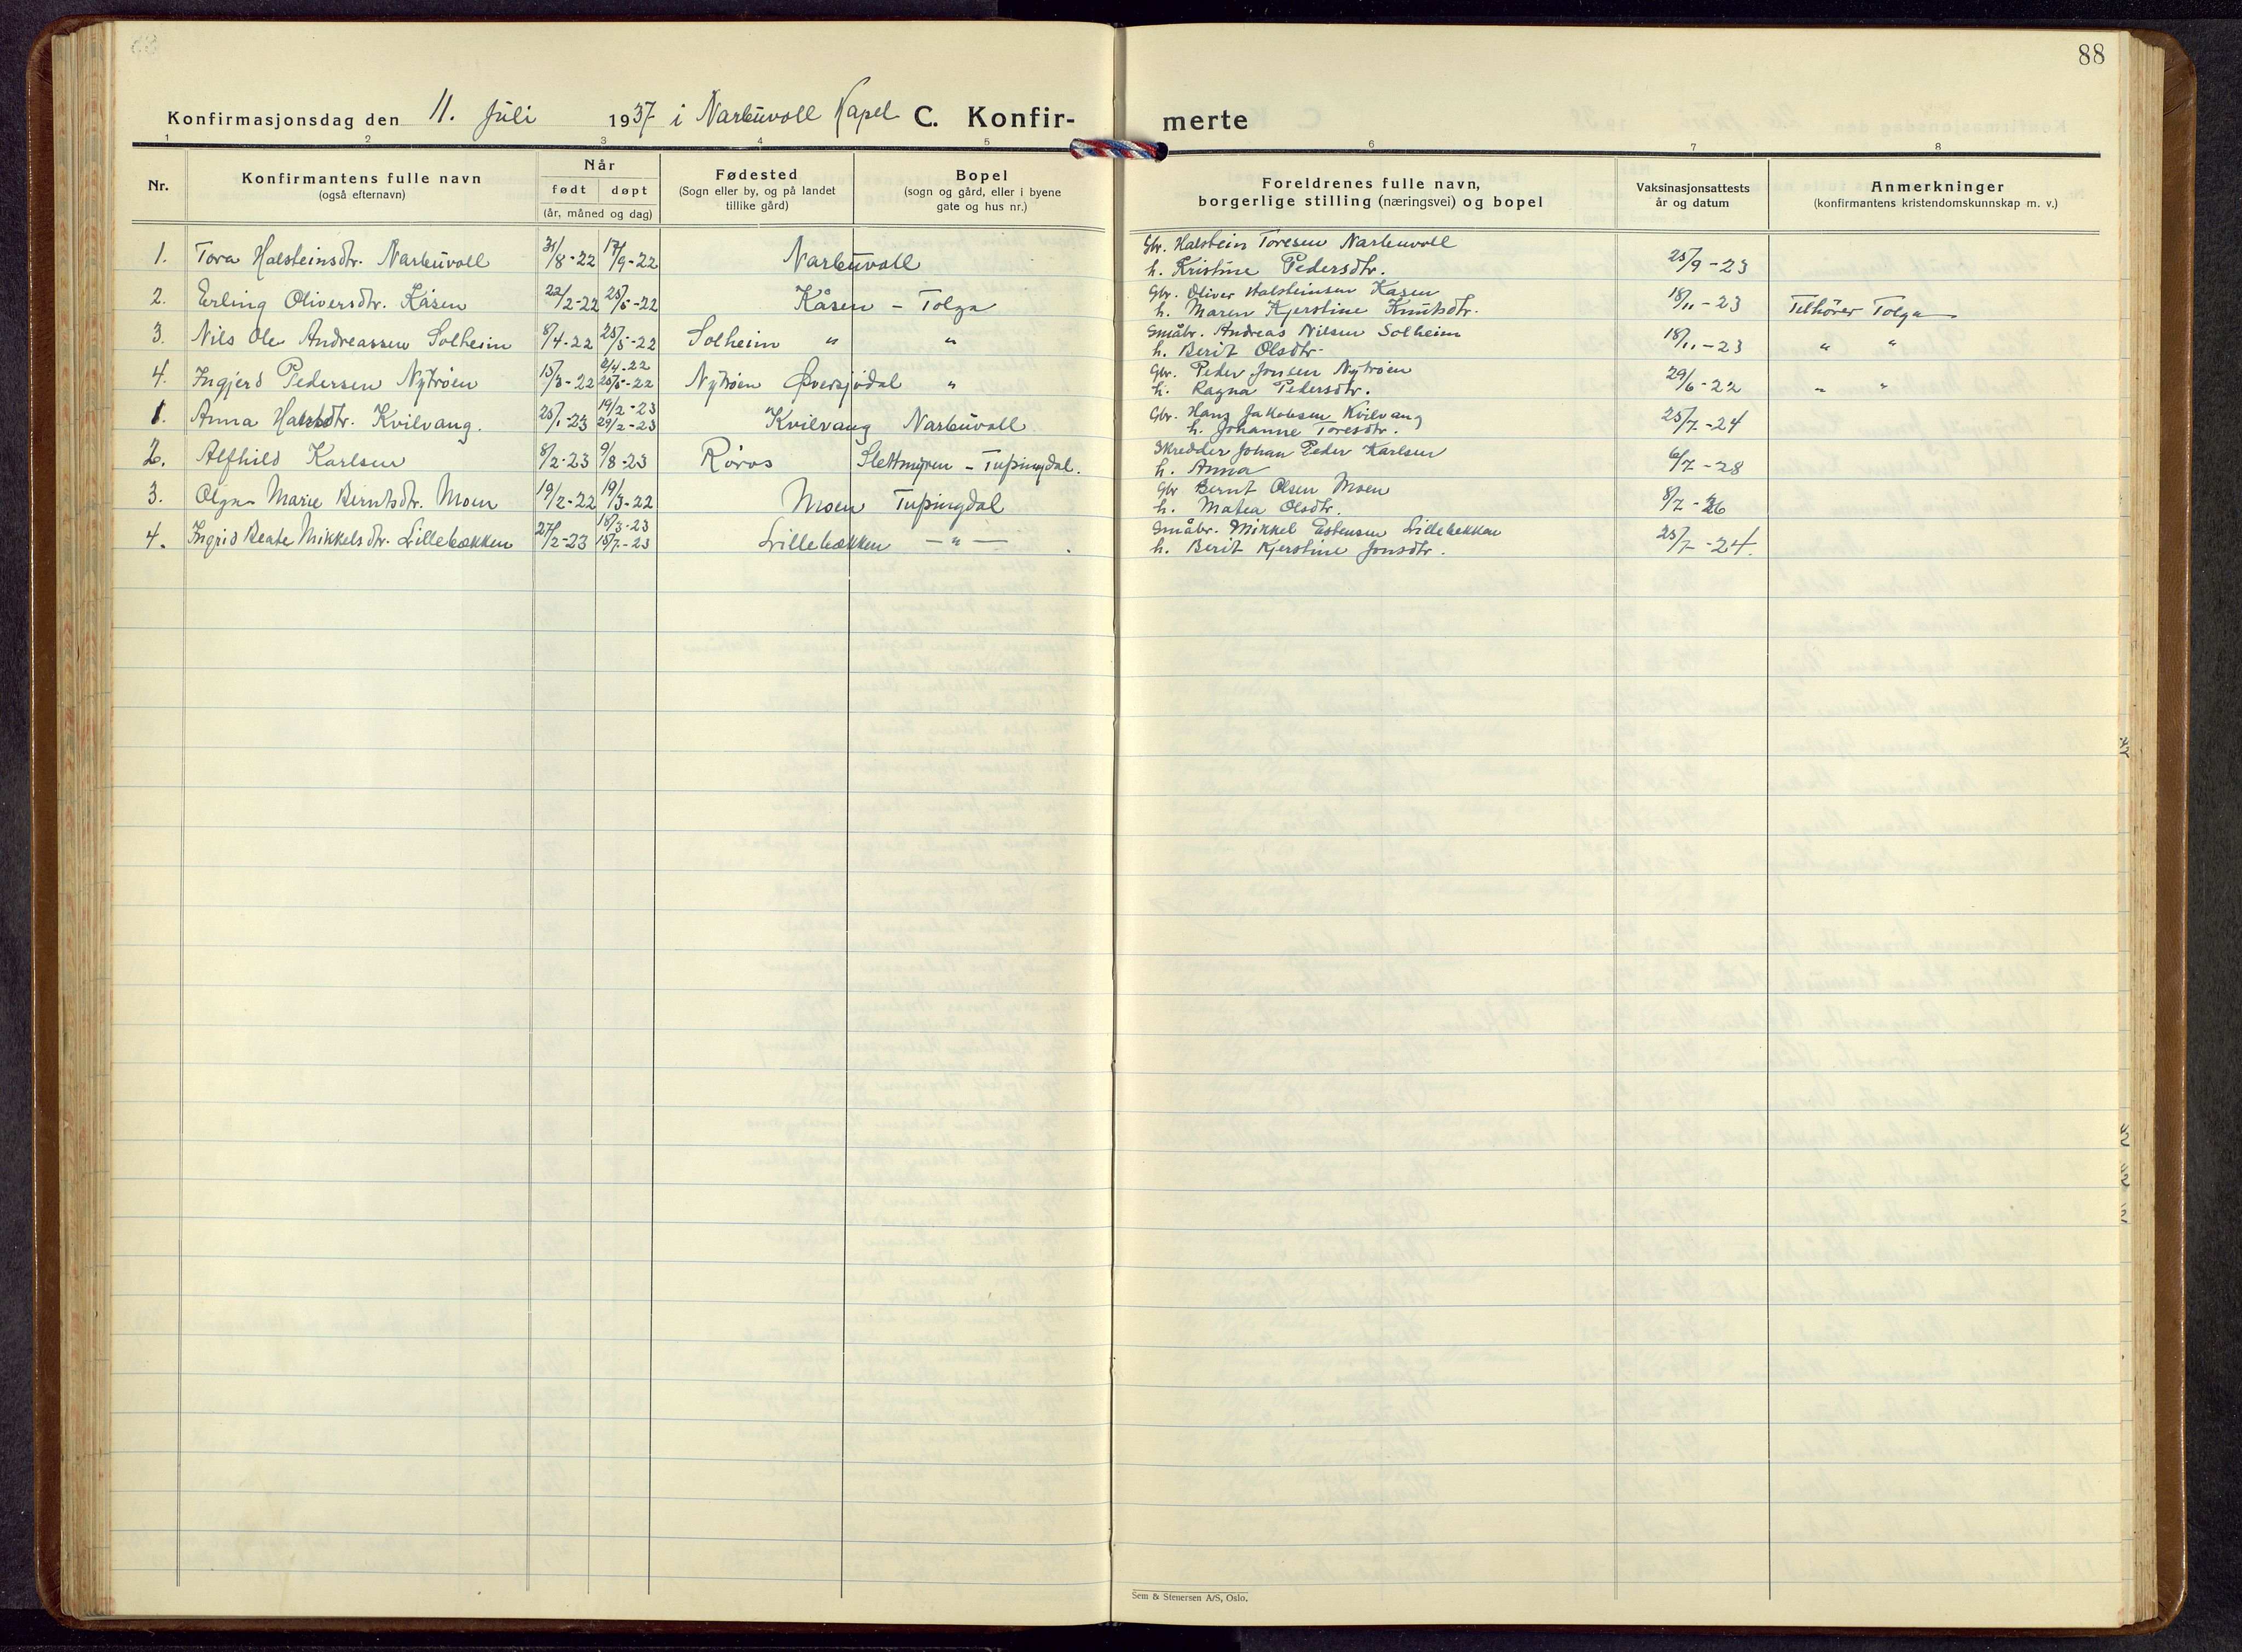 88
Konfirmasjonsdag den 11. Juli 1937 i Narbuvoll Kapel C. Konfir- merte
1 2 3 4 5 6 7 8
Nr. Konfirmantens fulle navn (også efternavn) Når født døpt (år, måned og dag) Fødested (Sogn eller by, og på landet tillike gård) Bopel (sogn og gård, eller i byene gate og hus nr.) Foreldrenes fulle navn, borgerlige stilling (næringsvei) og bopel Vaksinasjonsattests år og datum Anmerkninger (konfirmantens kristendomskunnskap m. v.)
1. Tora Halsteinsdtr. Narbuvoll 31/8-22 17/9-22 Narbuvoll Gbr. Halstein Toresen Narbuvoll
h. Kristine Pedersdtr. 25/9-23
2. Erling Oliversdtr. Kåsen 22/2-22 25/5-22 Kåsen - Tolga Gbr. Oliver Halsteinsen Kåsen
h. Maren Kjerstine Knutsdtr. 18/11-23 Tilhører Tolga
3. Nils Ole Andreassen Solheim 8/4-22 25/5-22 Solheim " " Småbr. Andreas Nilsen Solheim
h. Berit Olsdtr. 18/11-23 " "
4. Ingjerd Pedersen Nytrøen 15/3-22 2/4-22 25/5-22 Nytrøen Øversjødal " Gbr. Peder Jonsen Nytrøen
h. Ragna Pedersdtr. 29/6-22 " "
1. Anna Hansdtr. Kvilvang. 25/1-23 19/2-23 29/2-23 Kvilvang Narbuvoll Gbr. Hans Jakobsen Kvilvang
h. Johanne Toresdtr. 25/7-24
2. Alfhild Karlsen 8/2-23 9/8-23 Røros Slettmyren - Tufsingdal. Skredder Johan Peder Karlsen
h. Anna 6/7-28
3. Olga Marie Berntsdtr. Moen 19/2-22 19/3-22 Moen Tufsingdal Gbr Bernt Olsen Moen
h. Matea Olsdtr. 8/7-26
4. Ingrid Beate Mikkelsdtr. Lillebækken 27/2-23 18/3-23 15/7-23 Lillebækken -"- Småbr. Mikkel Estensen Lillebekken
h. Berit Kjerstine Jonsdtr. 25/7-24.
Sem & Stenersen A/S, Oslo.